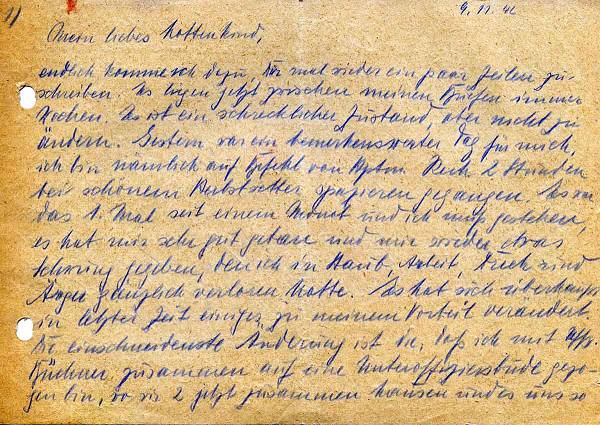 1) 9. 11. 42
Mein liebes Mottenkind,
endlich komme ich dazu, Dir mal wieder ein paar Zeilen zu
schreiben. Es liegen jetzt zwischen meinen Briefen immer
Wochen. Es ist ein schrecklicher Zustand, aber nicht zu
ändern. Gestern war ein bemerkenswerter Tag für mich,
ich bin nämlich auf Befehl von Hptm. 2 Stunden
bei schönem Herbstwetter spazieren gegangen. Es war
das 1. Mal seit einem Monat und ich muß gestehen,
es hat mir sehr gut getan und mir wieder etwas
Schwung gegeben, den ich in Staub, Arbeit, Dreck und
Ärger gänzlich verloren hatte. Es hat sich überhaupt
in letzter Zeit einiges zu meinem Vorteil verändert
Die einschneidenste Änderung ist die, daß ich mit Uffz.
Büchner zusammen auf eine Unteroffiziersbude gezo-
gen bin, wo wir 2 jetzt zusammen hausen und es uns so